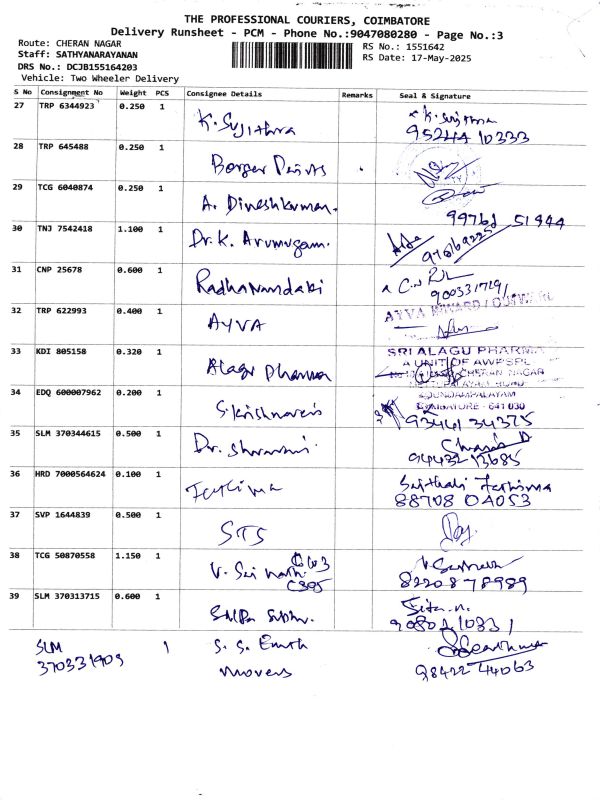 THE PROFESSIONAL COURIERS, COIMBATORE
Delivery Runsheet - PCM - Phone No.:9047080280 - Page No.:3
Route: CHERAN NAGAR
RS No.: 1551642
Staff: SATHYANARAYANAN
RS Date: 17-May-2025
DRS No.: DCJB155164203
Vehicle: Two Wheeler Delivery
S No Consignment No Weight PCS Consignee Details Remarks Seal & Signature
27 TRP 6344923 0.250 1 K. Sujithra
95244 10333
28 TRP 645488 0.250 1
29 TCG 6040874 0.250 1 A. Dineshkumar.
99761 51944
30 TNJ 7542418 1.100 1 Dr. K. Arumugam.
31 CNP 25678 0.600 1
32 TRP 622993 0.400 1 AYVA
33 KDI 805158 0.320 1 Alagu pharma
SRI ALAGU PHARMA
A UNIT OF AWPSPL
CHERAN NAGAR
34 EDQ 600007962 0.200 1
COIMBATORE - 641 030
93441 34375
35 SLM 370344615 0.500 1 Dr.
94432 13685
36 HRD 7000564624 0.100 1 Fathima
88708 04053
37 SVP 1644839 0.500 1 STS
38 TCG 50870558 1.150 1 V. Sri nath
C395
8220878989
39 SLM 370313715 0.600 1
SLM 1 S. S. Earth
370331909 movers
98422 44063